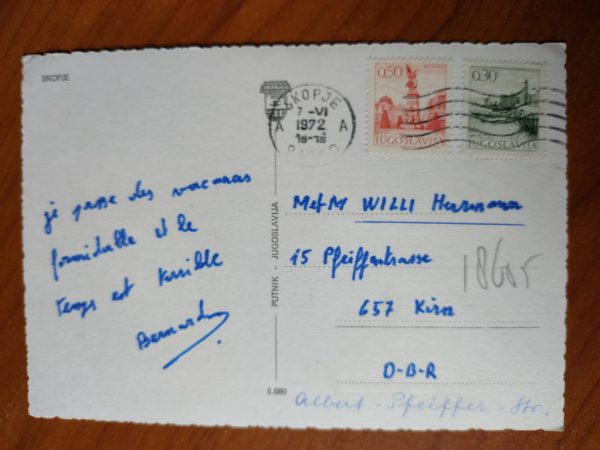 SKOPJE
SKOPJE
7-VI
1972
18-19
A A
0,50
JUGOSLAVIJA
0,30
JUGOSLAVIJA
je passe des vacances
formidable et le
temps est terrible
Bernard
PUTNIK - JUGOSLAVIJA
6.080
M et M WILLI Herrmann
15 Pfeifferstrasse
18605
657 Kirn
D-B-R
Albert - Pfeiffer - Str.